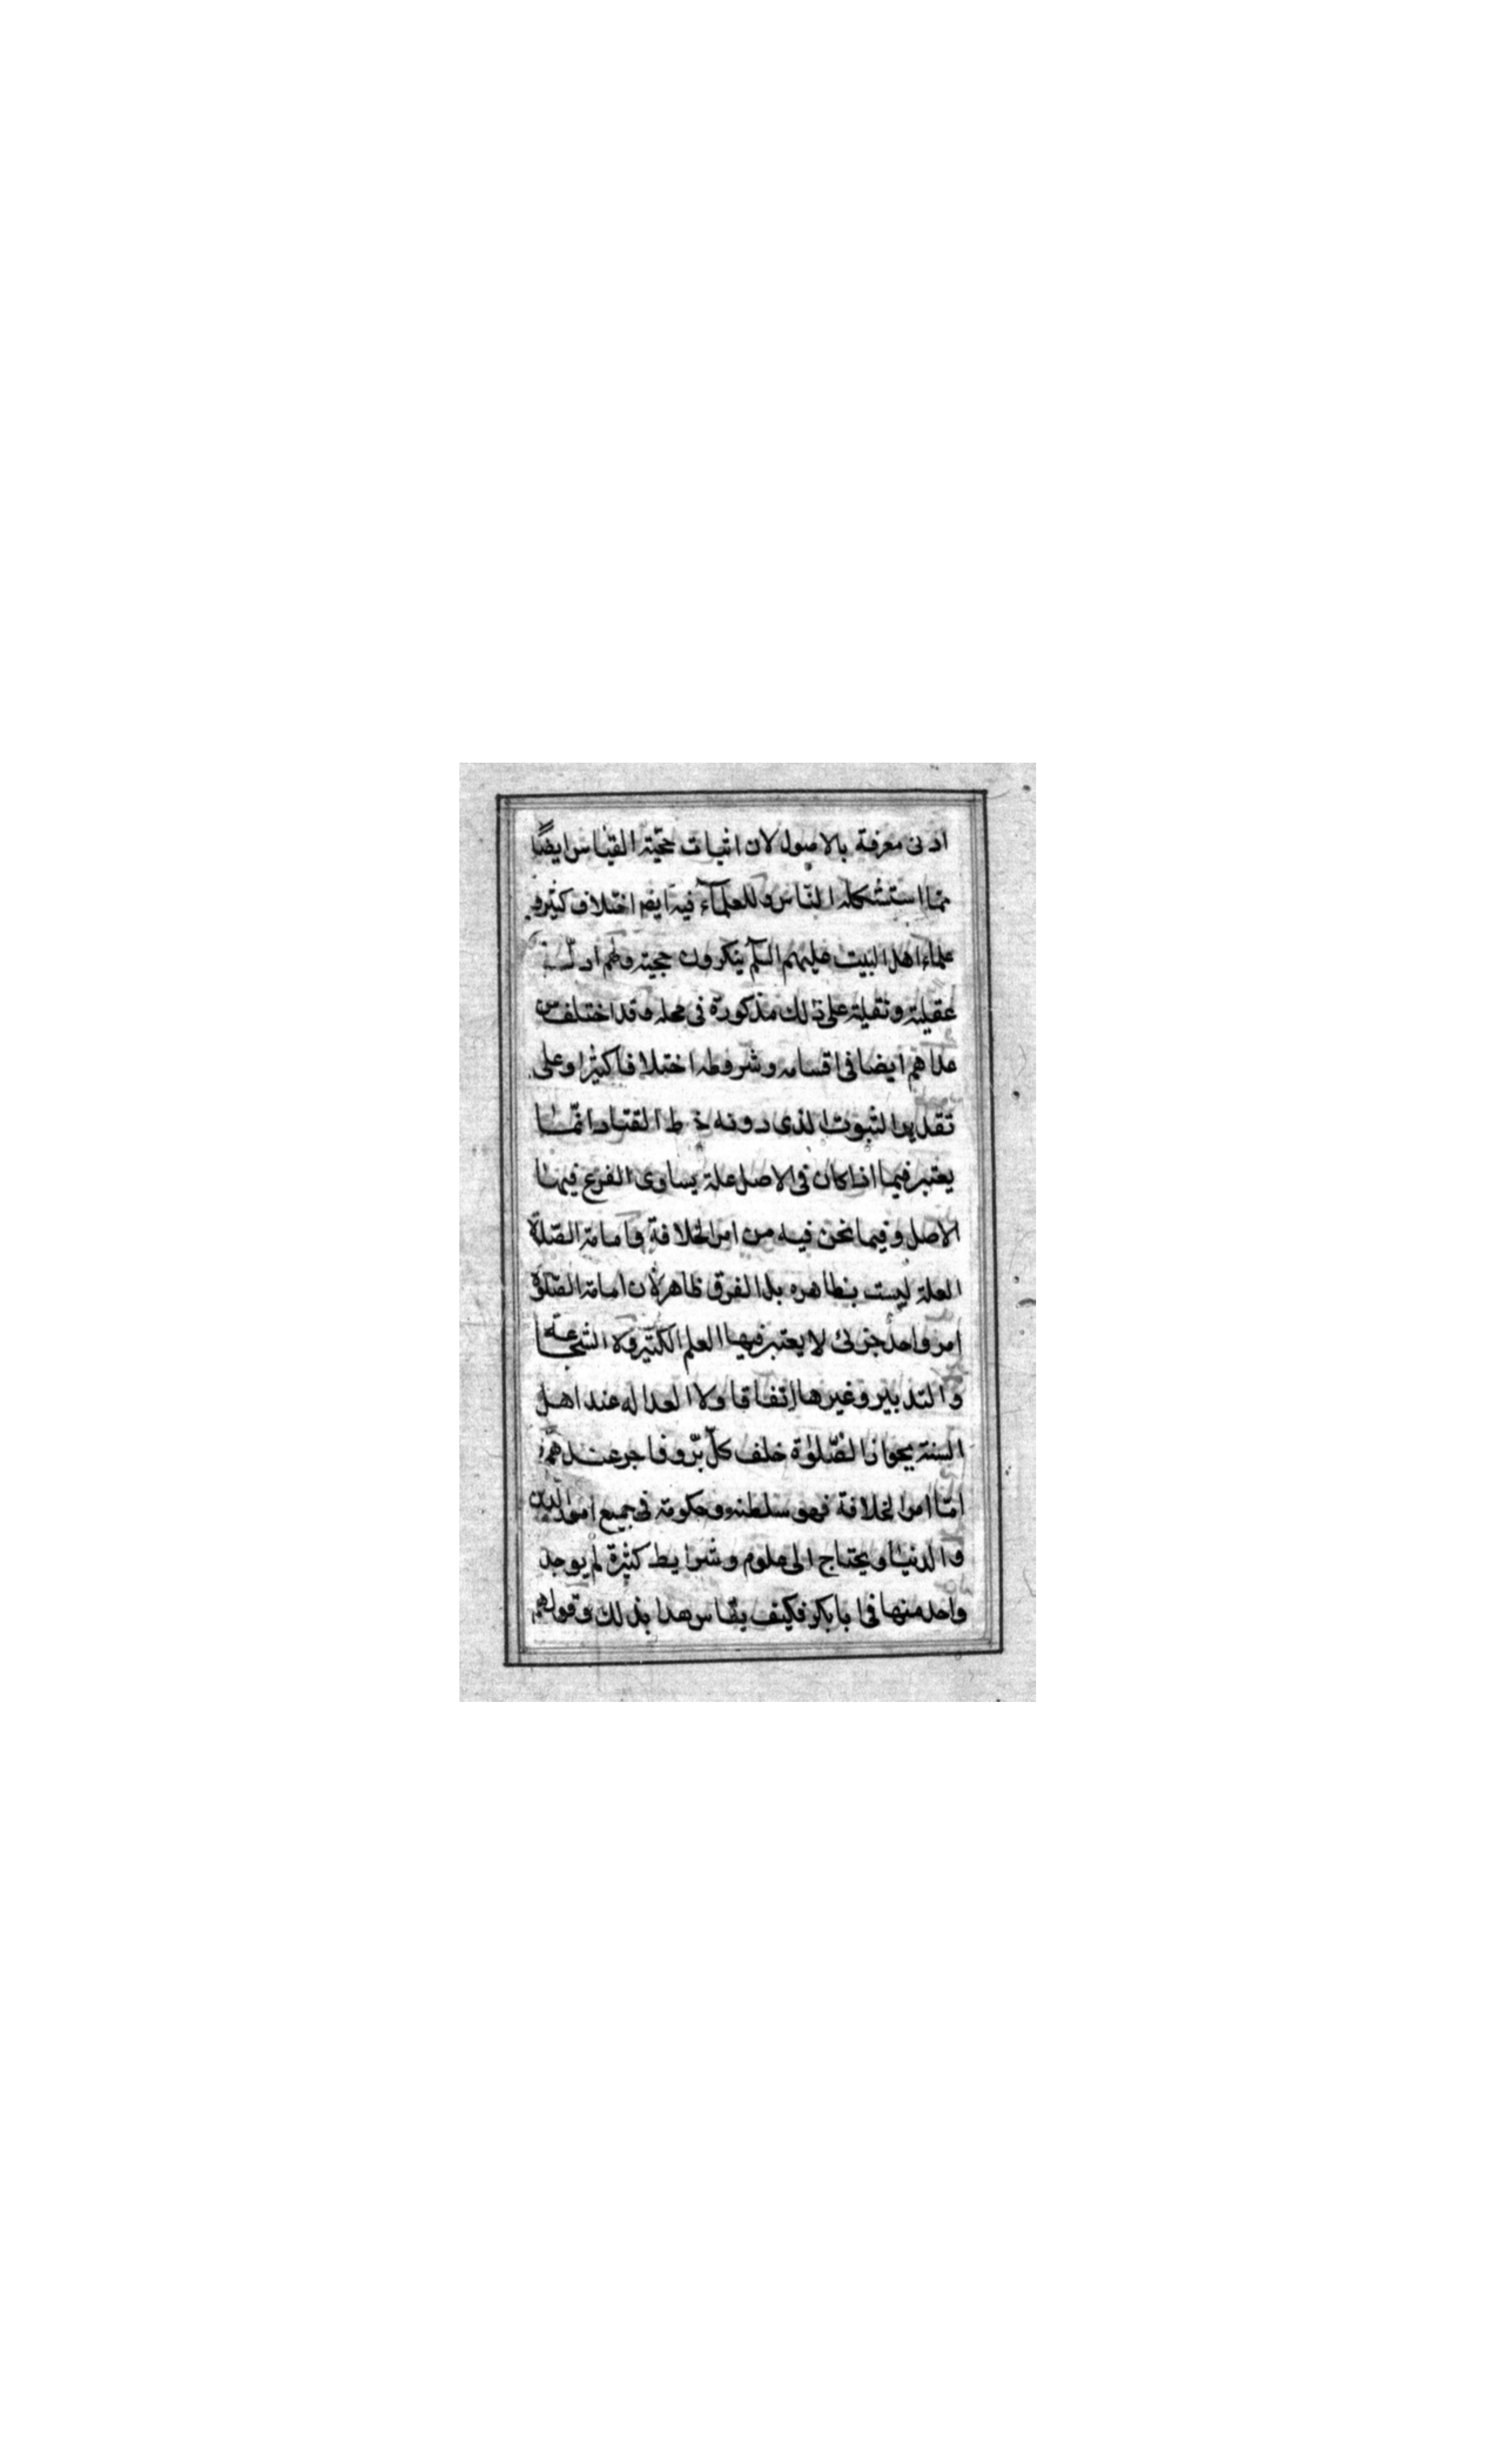 ادنى معرفة بالاصول لان اثبات حجّية القياس ايضًا
ممّا استشكله النّاس وللعلمآء فيه ايضا اختلاف كثير و
علماء اهل البيت عليهم السلم ينكرون حجيته ولهم ادلّة
عقلية ونقلية على ذلك مذكورة فى محله وقد اختلف من
عداهم ايضا فى اقسامه وشروطه اختلافا كثيرا وعلى
تقدير الثبوت الذى دونه خرط القتاد انّما
يعتبر فيما اذا كان فى الاصل علة يساوى الفرع فيها
الاصل وفيما نحن فيه من امر الخلافة وامامة الصّلاة
العلة ليست بظاهره بل الفرق ظاهر لان امامة الصّلوة
امر واحد جزئى لا يعتبر فيها العلم الكثير ولا الشّجاعة
والتدبير وغيرها اتفاقا ولا العداله عند اهل
السنة بجواز الصّلوٰة خلف كلّ برّ وفاجر عندهم و
امّا امر الخلافة فهو سلطنه وحكومة فى جميع امور الدين
والدنيا ويحتاج الى علوم وشرايط كثيرة لم يوجد
واحد منها فى ابابكر فكيف يقاس هذا بذلك وقولهم